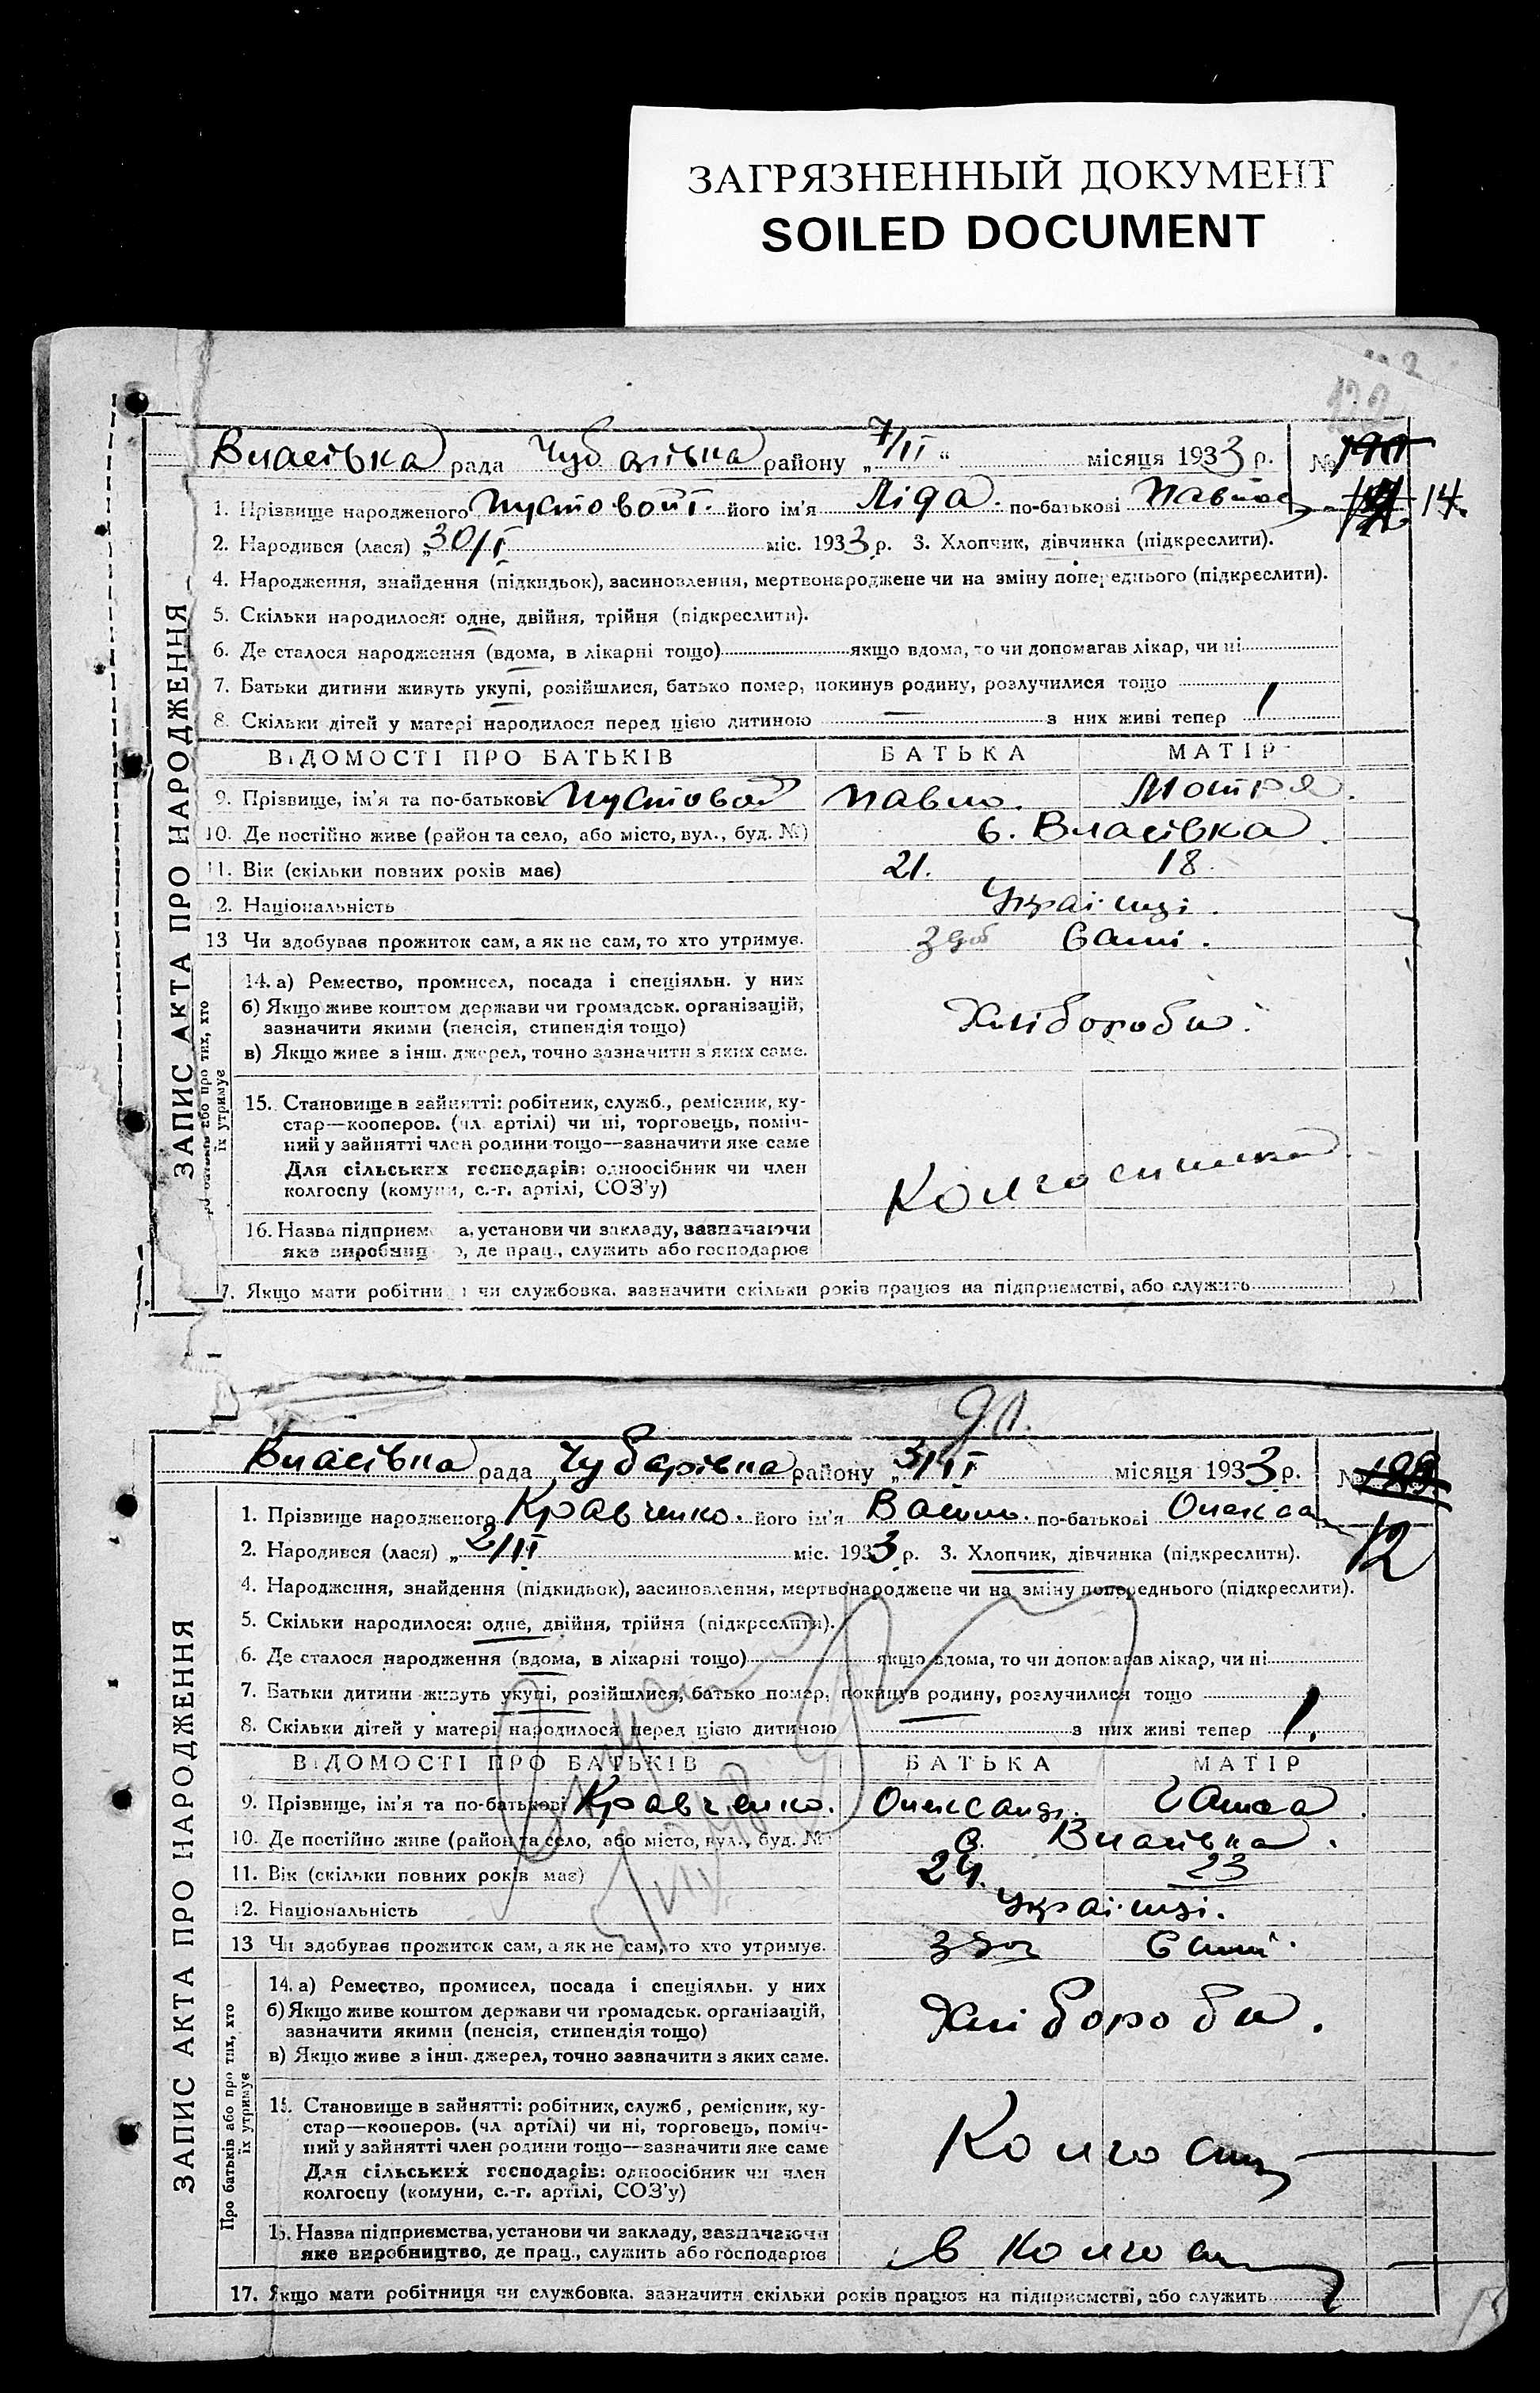 ЗАГРЯЗНЕННЫЙ ДОКУМЕНТ
SOILED DOCUMENT
122
ЗАПИС АКТА ПРО НАРОДЖЕННЯ
Власівка рада Чубарівка району „7/II“ місяця 1933 р. №
14.
1. Прізвище народженого Пустовойт. його ім'я Ліда. по-батькові Павлов
2. Народився (лася) „30/I міс. 1933 р. 3. Хлопчик, дівчинка (підкреслити).
4. Народження, знайдення (підкидьок), засиновлення, мертвонароджене чи на зміну попереднього (підкреслити).
5. Скільки народилося: одне, двійня, трійня (підкреслити).
6. Де сталося народження (вдома, в лікарні тощо) якщо вдома, то чи допомагав лікар, чи ні
7. Батьки дитини живуть укупі, розійшлися, батько помер, покинув родину, розлучилися тощо
8. Скільки дітей у матері народилося перед цією дитиною — з них живі тепер 1
ВІДОМОСТІ ПРО БАТЬКІВ БАТЬКА МАТІР
9. Прізвище, ім'я та по-батькові Пустовой Павло. Мотря.
10. Де постійно живе (район та село, або місто, вул., буд. №) с. Власівка.
11. Вік (скільки повних років має) 21. 18.
2. Національність Українці.
13 Чи здобуває прожиток сам, а як не сам, то хто утримує. здоб Самі.
або про тих, хто
їх утримує
14. а) Ремество, промисел, посада і спеціяльн. у них
б) Якщо живе коштом держави чи громадськ. організацій,
зазначити якими (пенсія, стипендія тощо)
Хлібороби.
в) Якщо живе з інш. джерел, точно зазначити з яких саме.
15. Становище в зайнятті: робітник, служб., ремісник, ку-
стар—кооперов. (чл. артілі) чи ні, торговець, поміч-
ний у зайнятті член родини тощо—зазначити яке саме
Для сільських господарів: одноосібник чи член
колгоспу (комуни, с.-г. артілі, СОЗ'у)
16. Назва підприєм а, установи чи закладу, зазначаючи
яке виробниц о, де прац., служить або господарює
7. Якщо мати робітни чи службовка. зазначити скільки років працює на підприємстві, або служить
ЗАПИС АКТА ПРО НАРОДЖЕННЯ
Власівка рада Чубарівка району „3/II місяця 1933 р. №
12
1. Прізвище народженого Кравченко. його ім'я Василь. по-батькові Олексан
2. Народився (лася) „2/II міс. 1933 р. 3. Хлопчик, дівчинка (підкреслити).
4. Народження, знайдення (підкидьок), засиновлення, мертвонароджене чи на зміну попереднього (підкреслити).
5. Скільки народилося: одне, двійня, трійня (підкреслити).
6. Де сталося народження (вдома, в лікарні тощо) якщо вдома, то чи допомагав лікар, чи ні
7. Батьки дитини живуть укупі, розійшлися, батько помер, покинув родину, розлучилися тощо
8. Скільки дітей у матері народилося перед цією дитиною — з них живі тепер 1.
ВІДОМОСТІ ПРО БАТЬКІВ БАТЬКА МАТІР
9. Прізвище, ім'я та по-батькові Кравченко. Олександ.
10. Де постійно живе (район та село, або місто, вул., буд. № с. Власівка.
11. Вік (скільки повних років має) 24. 23
12. Національність Українці.
13 Чи здобуває прожиток сам, а як не сам, то хто утримує. Самі.
Про батьків або про тих, хто
їх утримує
14. а) Ремество, промисел, посада і спеціяльн. у них
б) Якщо живе коштом держави чи громадськ. організацій,
зазначити якими (пенсія, стипендія тощо)
Хлібороби.
в) Якщо живе з інш. джерел, точно зазначити з яких саме.
15. Становище в зайнятті: робітник, служб., ремісник, ку-
стар—кооперов. (чл артілі) чи ні, торговець, поміч-
ний у зайнятті член родини тощо—зазначити яке саме
Для сільських господарів: одноосібник чи член
колгоспу (комуни, с.-г. артілі, СОЗ'у)
Колгосп
16. Назва підприємства, установи чи закладу, зазначаючи
яке виробництво, де прац., служить або господарює
в колгосп
17. Якщо мати робітниця чи службовка. зазначити скільки років працює на підприємстві, або служить